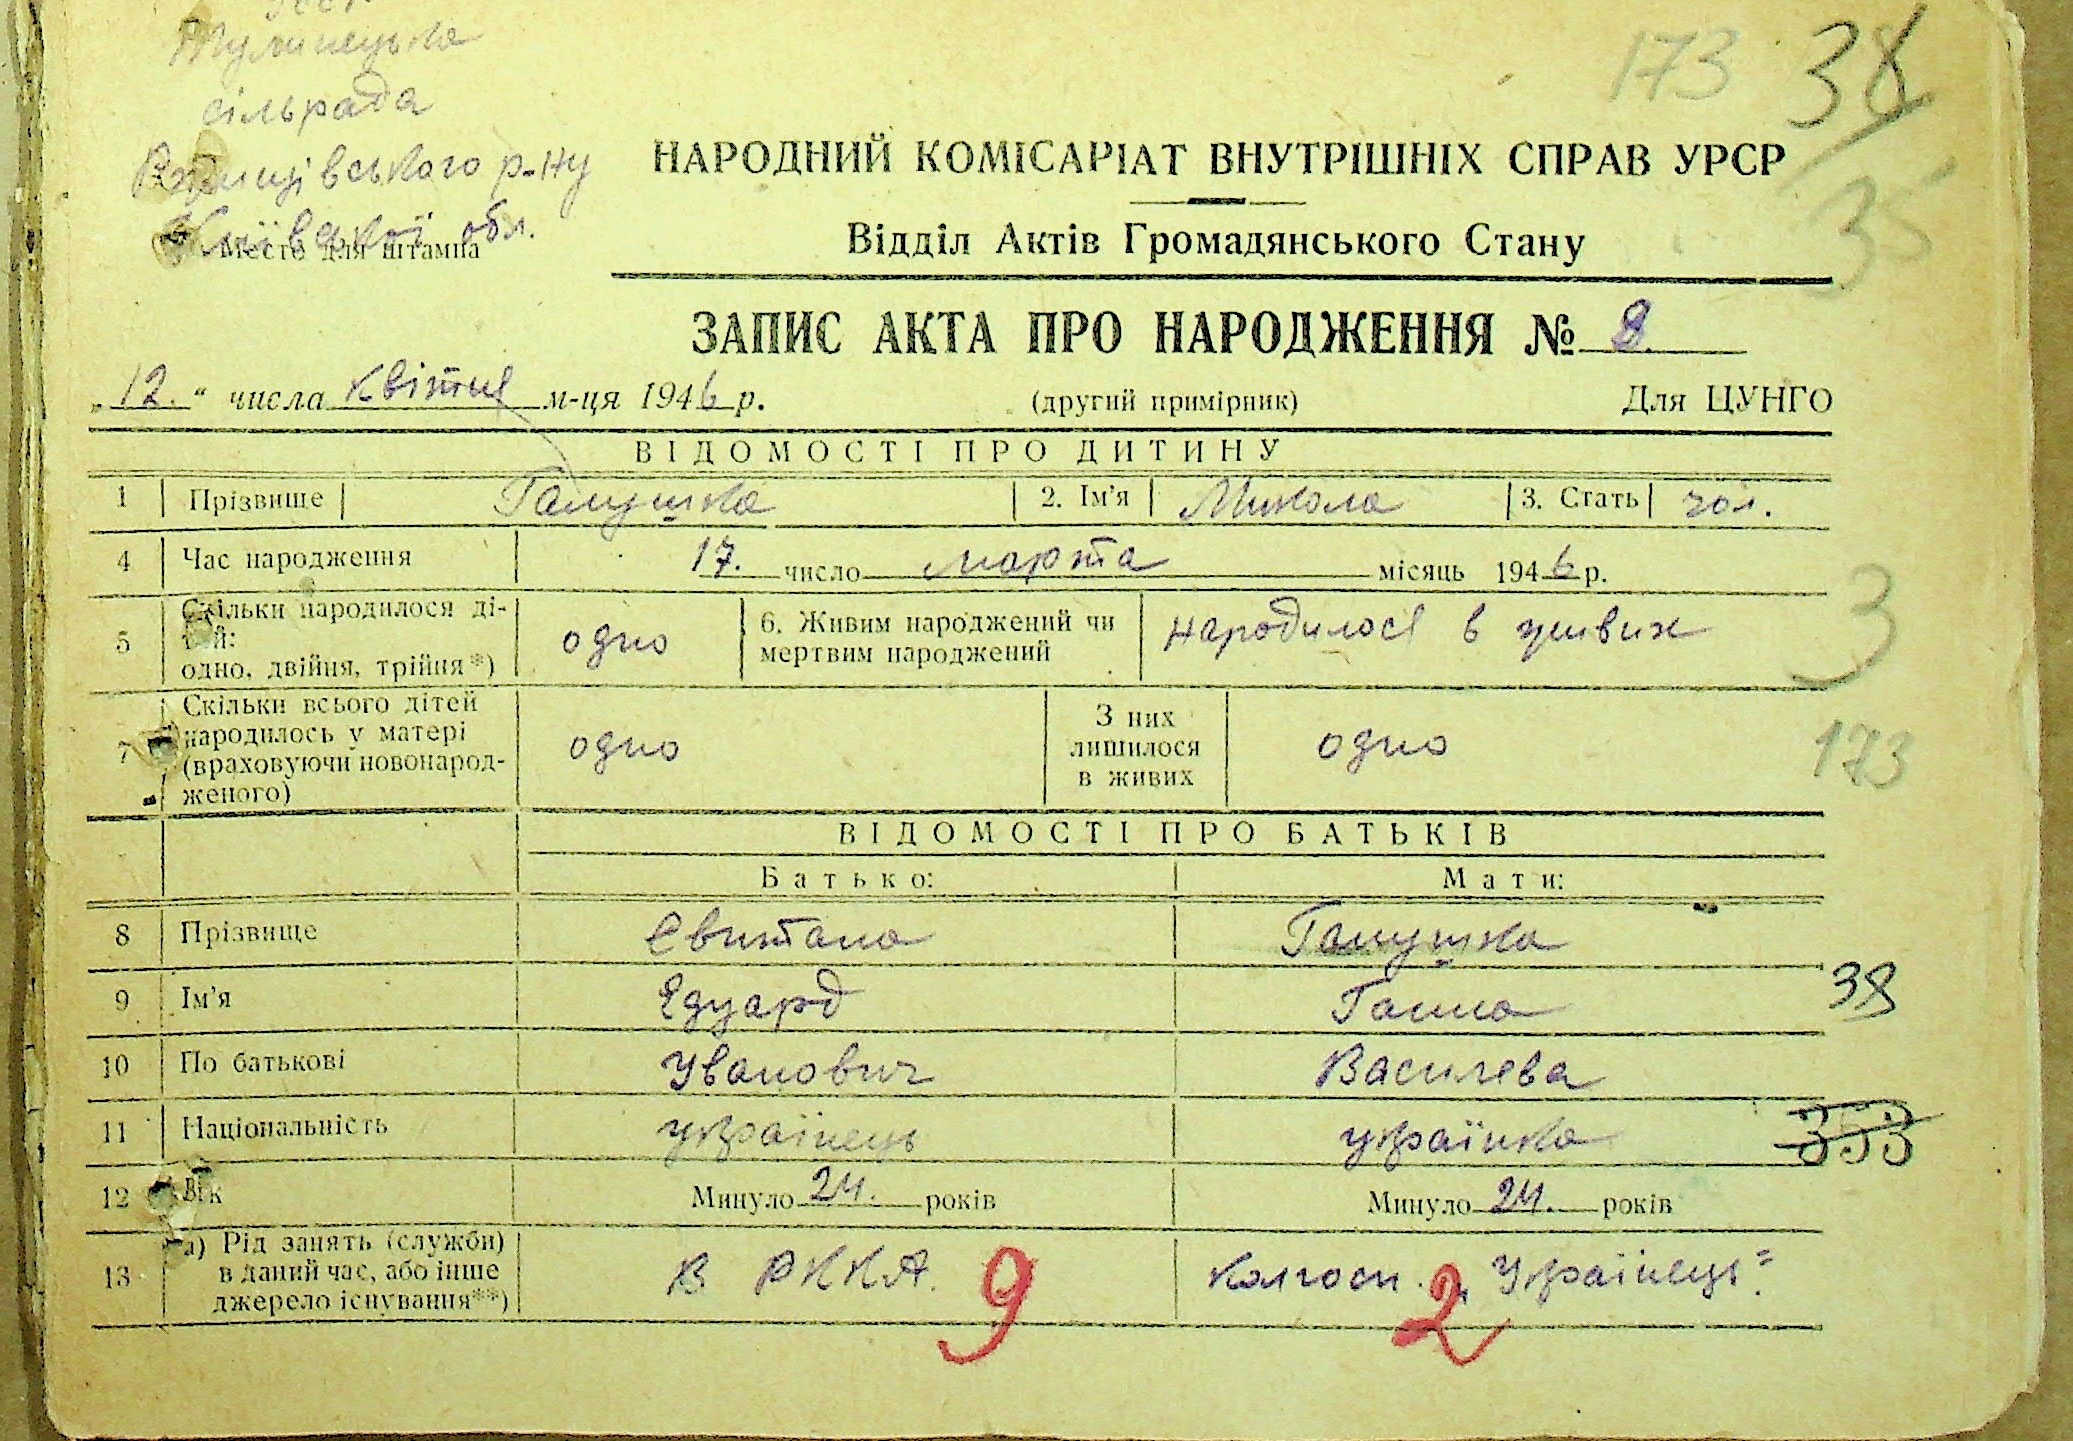 Тулинецька
сільрада
р-ну
Київської обл.
Место для штампа
173 38
35
НАРОДНИЙ КОМІСАРІАТ ВНУТРІШНІХ СПРАВ УРСР
Відділ Актів Громадянського Стану
ЗАПИС АКТА ПРО НАРОДЖЕННЯ № 8.
„12.“ числа квітня м-ця 1946 р. (другий примірник) Для ЦУНГО
ВІДОМОСТІ ПРО ДИТИНУ
1 Прізвище Галушка 2. Ім'я Микола 3. Стать чол.
4 Час народження 17. число марта місяць 1946 р.
5 Скільки народилося ді-
тей:
одно, двійня, трійня*) одно 6. Живим народжений чи
мертвим народжений народилося в живих
3
7 Скільки всього дітей
народилось у матері
(враховуючи новонарод-
женого) одно З них
лишилося
в живих одно
173
ВІДОМОСТІ ПРО БАТЬКІВ
Батько: Мати:
8 Прізвище Євитана Галушка
9 Ім'я Едуард Ганна 38
10 По батькові Уванович Василева
11 Національність українець українка 353
12 Вік Минуло 24. років Минуло 24. років
13 а) Рід занять (служби)
в даний час, або інше
джерело існування**) в РККА. Колгосп. „Українець“.
9 2